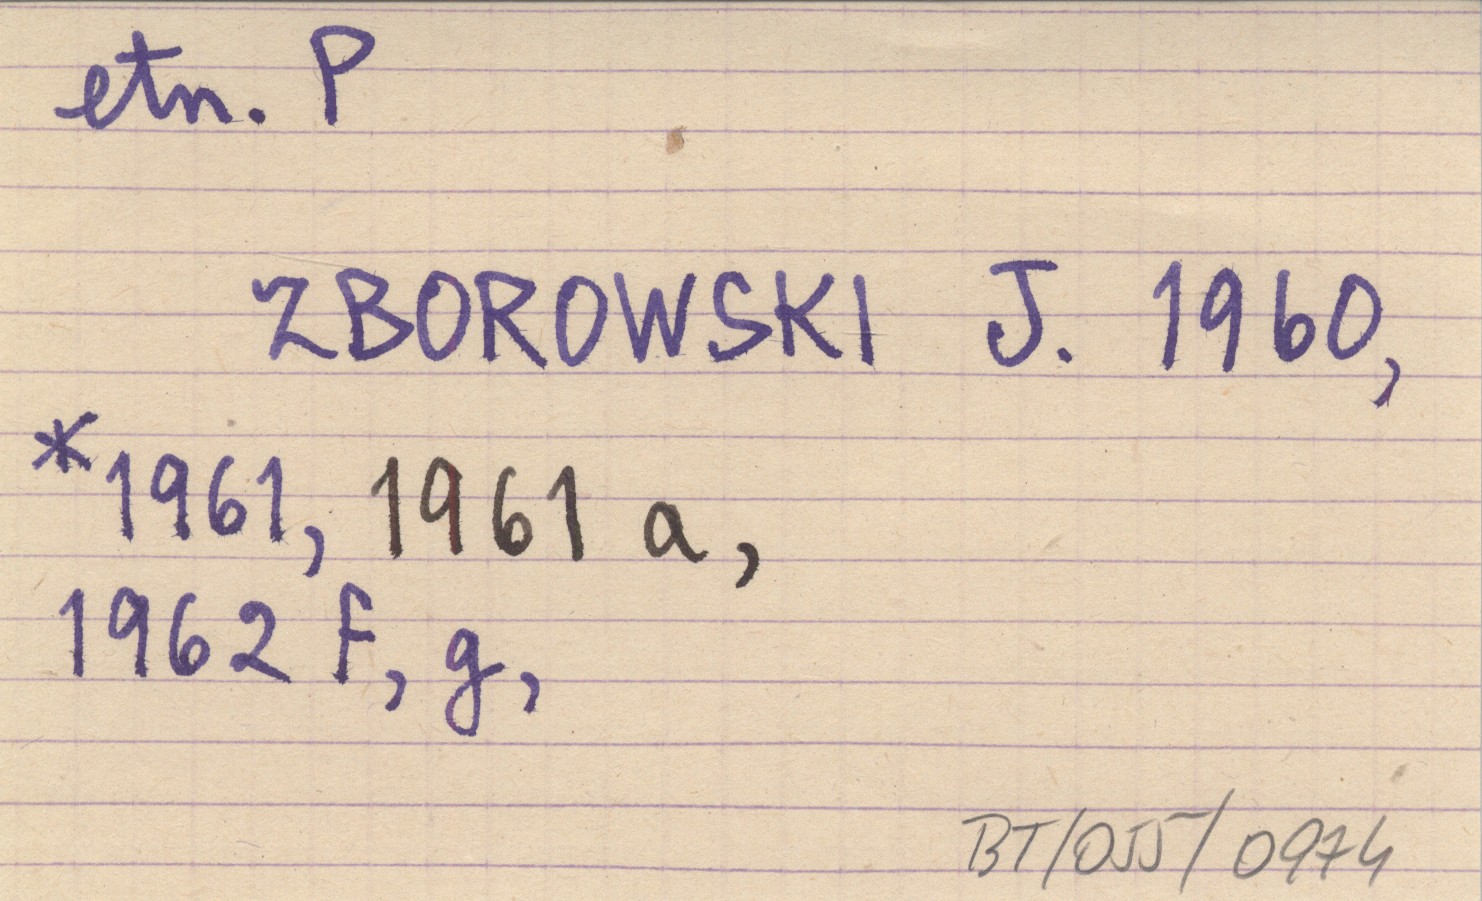 etn. P
ZBOROWSKI J. 1960,
*1961, 1961 a,
1962 f, g,
BT/OJJ/0974